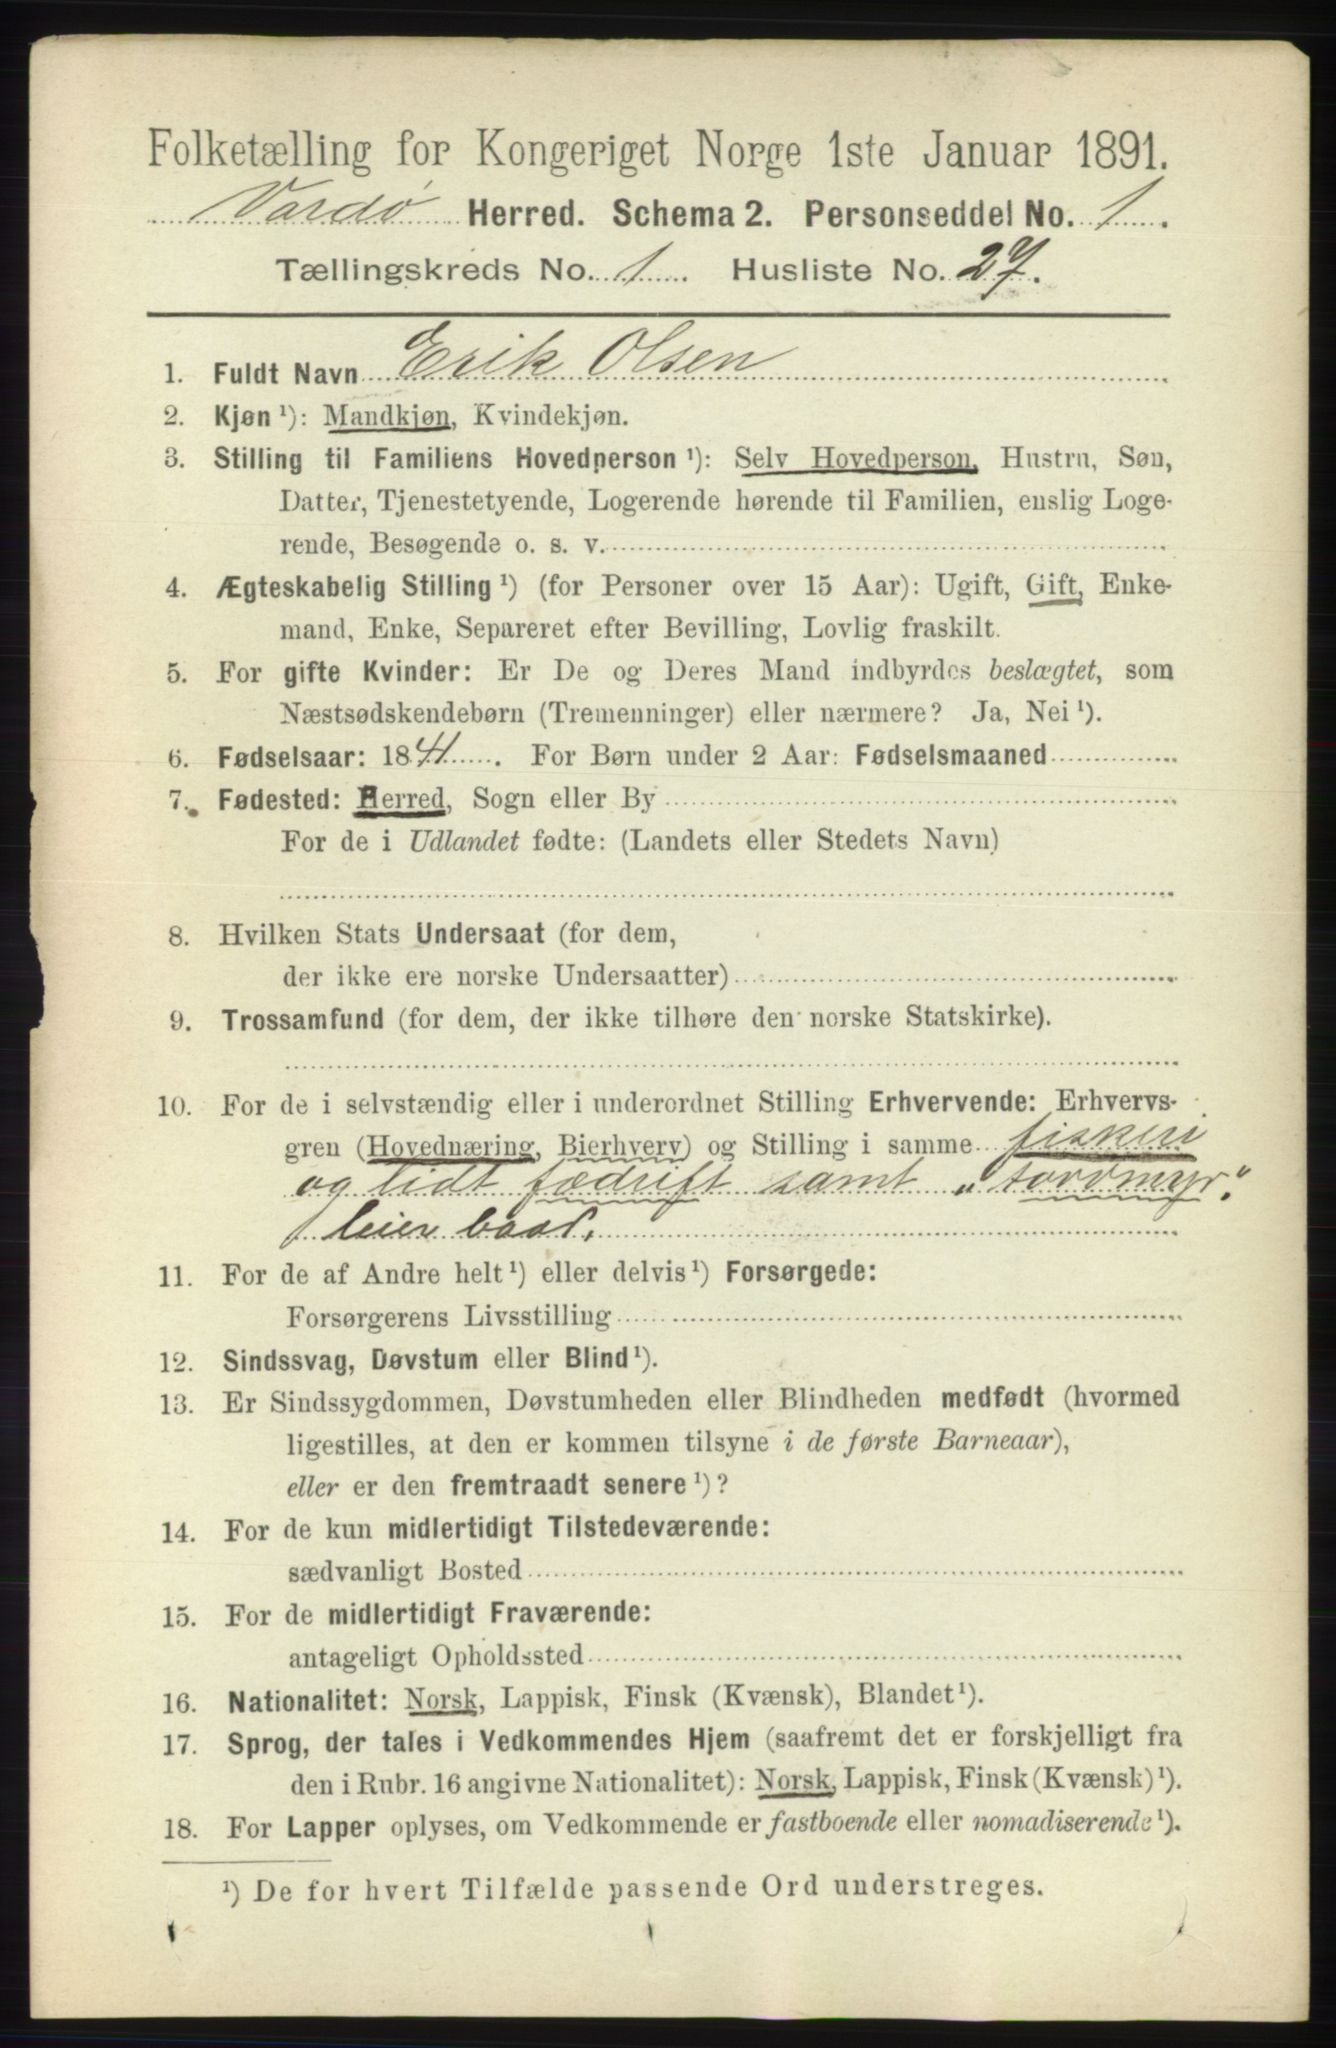 Folketælling for Kongeriget Norge 1ste Januar 1891.
Vardø Herred. Schema 2. Personseddel No. 1.
Tællingskreds No. 1. Husliste No. 27.
1. Fuldt Navn Erik Olsen
2. Kjøn ¹): Mandkjøn, Kvindekjøn.
3. Stilling til Familiens Hovedperson ¹): Selv Hovedperson, Hustru, Søn,
Datter, Tjenestetyende, Logerende hørende til Familien, enslig Loge-
rende, Besøgende o. s. v.
4. Ægteskabelig Stilling ¹) (for Personer over 15 Aar): Ugift, Gift, Enke-
mand, Enke, Separeret efter Bevilling, Lovlig fraskilt.
5. For gifte Kvinder: Er De og Deres Mand indbyrdes beslægtet, som
Næstsødskendebørn (Tremenninger) eller nærmere? Ja, Nei ¹).
6. Fødselsaar: 1841. For Børn under 2 Aar: Fødselsmaaned
7. Fødested: Herred, Sogn eller By
For de i Udlandet fødte: (Landets eller Stedets Navn)
8. Hvilken Stats Undersaat (for dem,
der ikke ere norske Undersaatter)
9. Trossamfund (for dem, der ikke tilhøre den norske Statskirke).
10. For de i selvstændig eller i underordnet Stilling Erhvervende: Erhvervs-
gren (Hovednæring, Bierhverv) og Stilling i samme fiskeri
og lidt fædrift samt "torvmyr."
leier baad.
11. For de af Andre helt ¹) eller delvis ¹) Forsørgede:
Forsørgerens Livsstilling
12. Sindssvag, Døvstum eller Blind ¹).
13. Er Sindssygdommen, Døvstumheden eller Blindheden medfødt (hvormed
ligestilles, at den er kommen tilsyne i de første Barneaar),
eller er den fremtraadt senere ¹)?
14. For de kun midlertidigt Tilstedeværende:
sædvanligt Bosted
15. For de midlertidigt Fraværende:
antageligt Opholdssted
16. Nationalitet: Norsk, Lappisk, Finsk (Kvænsk), Blandet ¹).
17. Sprog, der tales i Vedkommendes Hjem (saafremt det er forskjelligt fra
den i Rubr. 16 angivne Nationalitet): Norsk, Lappisk, Finsk (Kvænsk) ¹).
18. For Lapper oplyses, om Vedkommende er fastboende eller nomadiserende ¹).
¹) De for hvert Tilfælde passende Ord understreges.